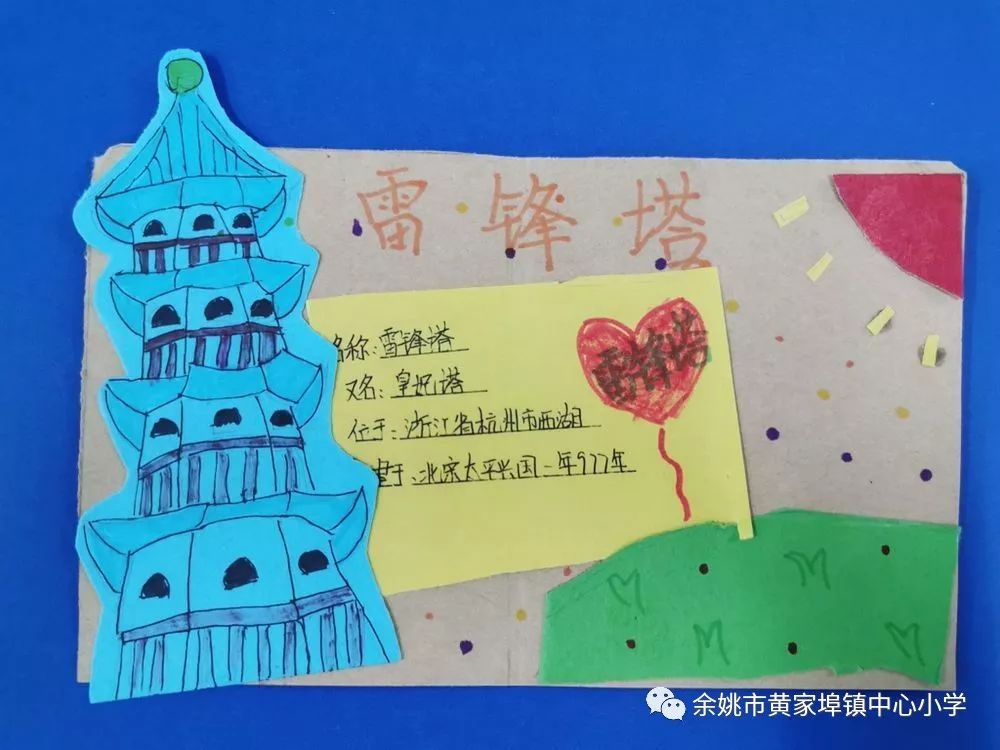 雷锋塔
名称:雷锋塔
又名:皇妃塔
位于:浙江省杭州市西湖
建于:北宋太平兴国二年977年
雷锋塔
余姚市黄家埠镇中心小学